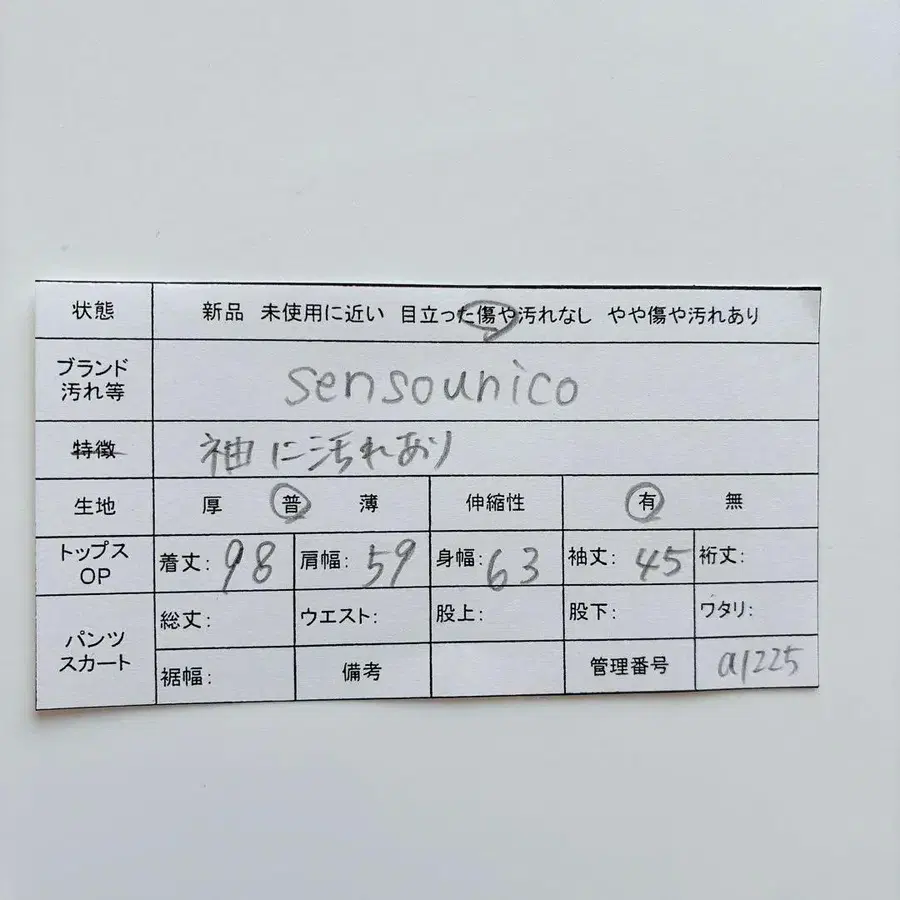 状態 新品 未使用に近い 目立った傷や汚れなし やや傷や汚れあり
ブランド
汚れ等 sensounico
特徴 袖に汚れあり
生地 厚 普 薄 伸縮性 有 無
トップス
OP 着丈: 98 肩幅: 59 身幅: 63 袖丈: 45 裄丈:
パンツ
スカート 総丈: ウエスト: 股上: 股下: ワタリ:
裾幅: 備考 管理番号 a1225